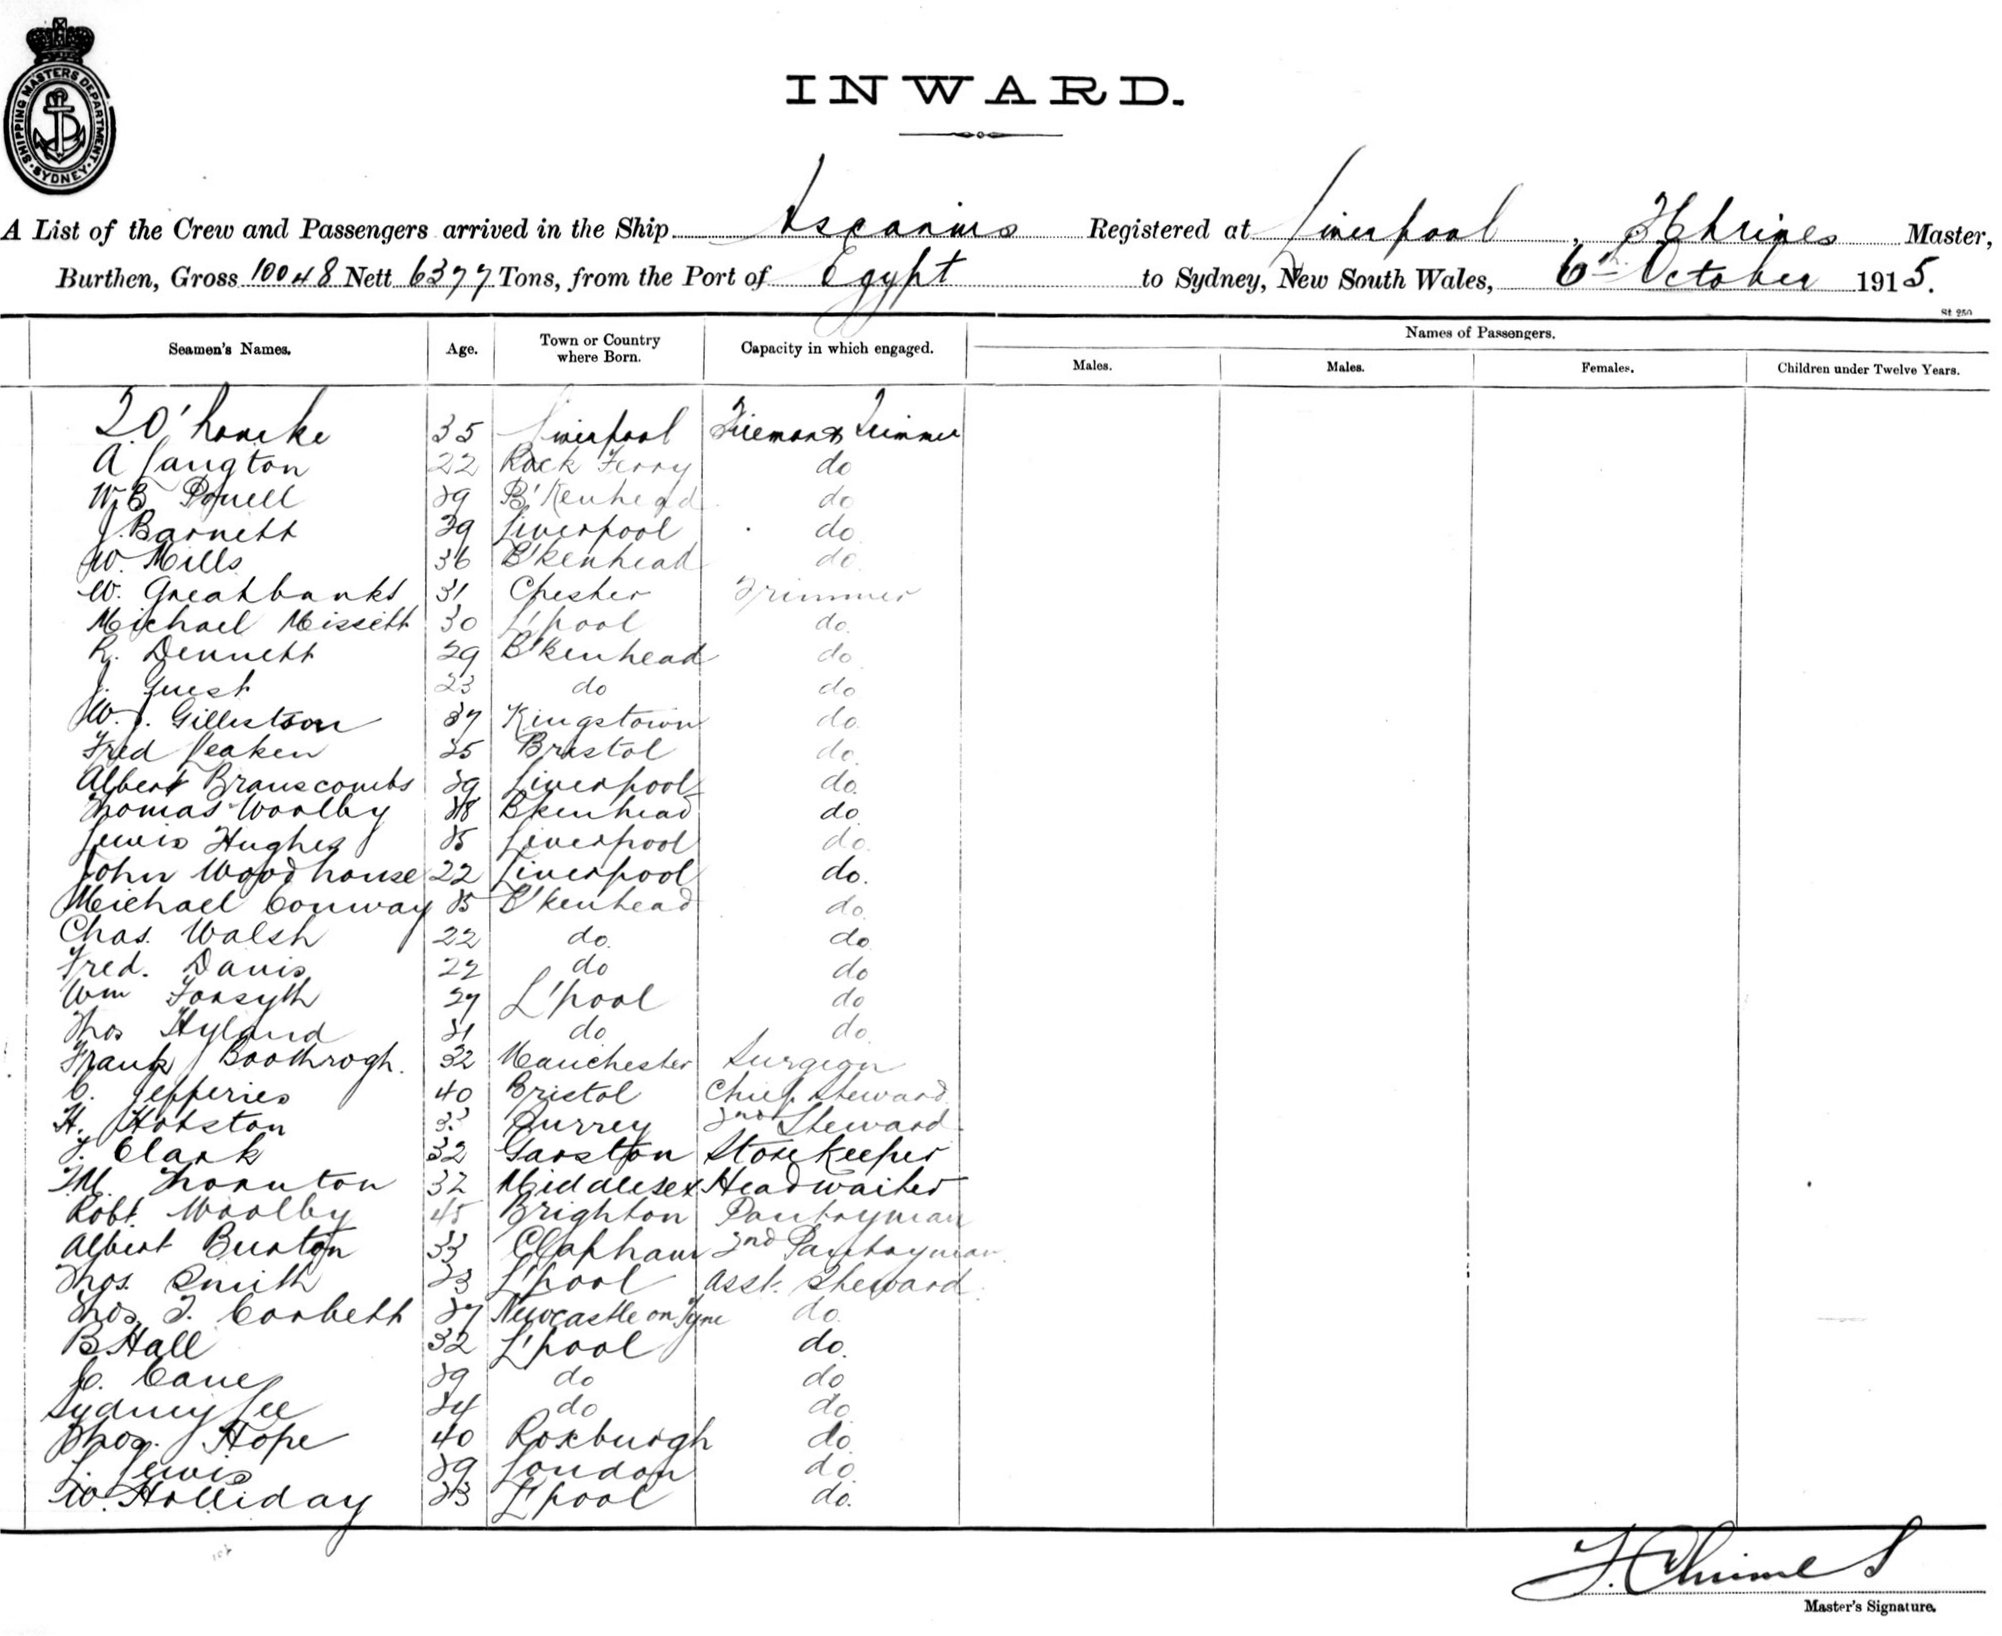 SHIPPING MASTERS DEPARTMENT
SYDNEY
INWARD.
A List of the Crew and Passengers arrived in the Ship Ascanius Registered at Liverpool, F Chrimes Master,
Burthen, Gross 10048 Nett 6377 Tons, from the Port of Egypt to Sydney, New South Wales, 6th October 1915.
St 250
Names of Passengers.
Seamen's Names. Age. Town or Country where Born. Capacity in which engaged. Males. Males. Females. Children under Twelve Years.
35 Liverpool Fireman & Trimmer
A Langton 22 Rock Ferry do
W.B Powell 39 B'Kenhead do
J. Barnett 39 Liverpool do
W. Mills 36 B'kenhead do.
W. Greatbanks 31 Chester Trimmer
Michael Missett 30 L'pool do.
R. Dennett 29 B'kenhead do
J. Guest 23 do do
W. J. Gillistson 37 Kingstown do.
Fred Leaken 25 Bristol do.
Albert Branscombs 39 Liverpool do.
Thomas Woolby B'kenhead do.
Lewis Hughes Liverpool do.
John Woodhouse 22 Liverpool do.
Michael Conway B'kenhead do.
Chas. Walsh 22 do. do.
Fred. Davis 22 do do
Wm Forsyth 27 L'pool do
Thos Hyland do. do.
Frank Boothrogh. 32 Manchester Surgeon
C. Jefferies 40 Bristol Chief Steward.
H. Hobston 33 Surrey 2nd Steward
F. Clark 32 Garston Storekeeper
T.M. Thornton 32 Middlesex Headwaiter
Robt. Woolby 45 Brighton Pantryman
Albert Burton 33 Clapham 2nd Pantryman
Thos. Smith 23 L'pool Asst. Steward.
Thos. F. Corbett 37 Newcastle on Tyne do.
B Hall 32 L'pool do.
C. Cane 39 do do
Sydney Lee 24 do do.
Thos. Hope 40 Roxburgh do.
L. Lewis 39 London do.
W. Holliday 23 L'pool do.
F. Chrimes
Master's Signature.